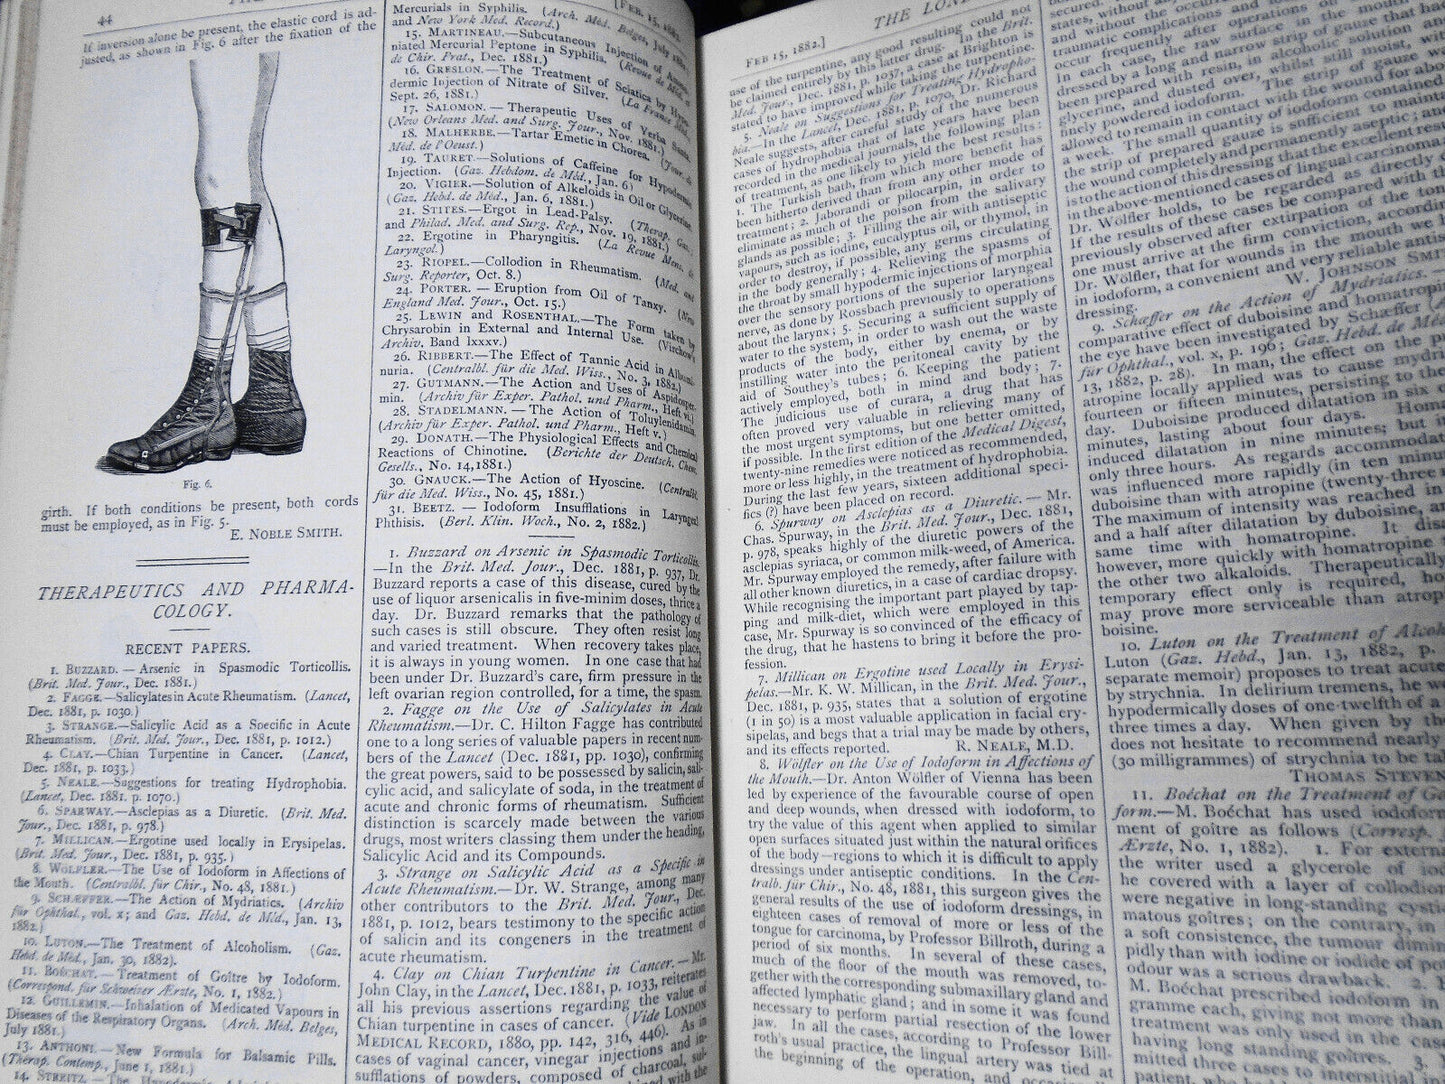 44
If inversion alone be present, the elastic cord is ad-
justed, as shown in Fig. 6 after the fixation of the
Fig. 6.
girth. If both conditions be present, both cords
must be employed, as in Fig. 5.
E. NOBLE SMITH.
THERAPEUTICS AND PHARMA-
COLOGY.
RECENT PAPERS.
1. BUZZARD. — Arsenic in Spasmodic Torticollis.
(Brit. Med. Jour., Dec. 1881.)
2. FAGGE.—Salicylates in Acute Rheumatism. (Lancet,
Dec. 1881, p. 1030.)
3. STRANGE.—Salicylic Acid as a Specific in Acute
Rheumatism. (Brit. Med. Jour., Dec. 1881, p. 1012.)
4. CLAY.—Chian Turpentine in Cancer. (Lancet,
Dec. 1881, p. 1033.)
5. NEALE.—Suggestions for treating Hydrophobia.
(Lancet, Dec. 1881. p. 1070.)
6. SPARWAY.—Asclepias as a Diuretic. (Brit. Med.
Jour., Dec. 1881, p. 978.)
7. MILLICAN.—Ergotine used locally in Erysipelas.
(Brit. Med. Jour., Dec. 1881, p. 935.)
8. WÖLFLER.—The Use of Iodoform in Affections of
the Mouth. (Centralbl. für Chir., No. 48, 1881.)
9. SCHÆFFER.—The Action of Mydriatics. (Archiv
für Ophthal., vol. x; and Gaz. Hebd. de Méd., Jan. 13,
1882.)
10. LUTON.—The Treatment of Alcoholism. (Gaz.
Hebd. de Méd., Jan. 30, 1882).
11. BOÉCHAT.—Treatment of Goître by Iodoform.
(Correspond. für Schweizer Ærzte, No. 1, 1882.)
12. GUILLEMIN.—Inhalation of Medicated Vapours in
Diseases of the Respiratory Organs. (Arch. Méd. Belges,
July 1881.)
13. ANTHONI.—New Formula for Balsamic Pills.
(Therap. Contemp., June 1, 1881.)
14. STREITZ.—The
[FEB. 15,
Mercurials in Syphilis. (Arch. Méd. Belges, July 1881;
and New York Med. Record.)
15. MARTINEAU.—Subcutaneous Injection of
niated Mercurial Peptone in Syphilis. (Revue de Méd. et
de Chir. Prat., Dec. 1881.)
16. GRESLON.—The Treatment of Sciatica by
dermic Injection of Nitrate of Silver. (La France Méd.,
Sept. 26, 1881.)
17. SALOMON. — Therapeutic Uses of Yerba Santa.
(New Orleans Med. and Surg. Jour., Nov. 1881.)
18. MALHERBE.—Tartar Emetic in Chorea. (Jour. de
Méd. de l'Oeust.)
19. TAURET.—Solutions of Caffeine for Hypodermic
Injection. (Gaz. Hebdom. de Méd., Jan. 6)
20. VIGIER.—Solution of Alkeloids in Oil or Glycerine.
(Gaz. Hebd. de Méd., Jan. 6, 1881.)
21. STITES.—Ergot in Lead-Palsy. (Therap. Gaz.,
and Philad. Med. and Surg. Rep., Nov. 19, 1881.)
22. Ergotine in Pharyngitis. (La Revue Mens. de
Laryngol.)
23. RIOPEL.—Collodion in Rheumatism. (Med. and
Surg. Reporter, Oct. 8.)
24. PORTER. — Eruption from Oil of Tanxy. (New
England Med. Jour., Oct. 15.)
25. LEWIN and ROSENTHAL.—The Form taken by
Chrysarobin in External and Internal Use. (Virchow's
Archiv, Band lxxxv.)
26. RIBBERT.—The Effect of Tannic Acid in Albumi-
nuria. (Centralbl. für die Med. Wiss., No. 3, 1882.)
27. GUTMANN.—The Action and Uses of Aspidosper-
min. (Archiv für Exper. Pathol. und Pharm., Heft vi.)
28. STADELMANN. — The Action of Toluylenidamin.
(Archiv für Exper. Pathol. und Pharm., Heft v.)
29. DONATH.—The Physiological Effects and Chemical
Reactions of Chinotine. (Berichte der Deutsch. Chem.
Gesells., No. 14, 1881.)
30. GNAUCK.—The Action of Hyoscine. (Centralbl.
für die Med. Wiss., No. 45, 1881.)
31. BEETZ. — Iodoform Insufflations in Laryngeal
Phthisis. (Berl. Klin. Woch., No. 2, 1882.)
1. Buzzard on Arsenic in Spasmodic Torticollis.
—In the Brit. Med. Jour., Dec. 1881, p. 937, Dr.
Buzzard reports a case of this disease, cured by the
use of liquor arsenicalis in five-minim doses, thrice a
day. Dr. Buzzard remarks that the pathology of
such cases is still obscure. They often resist long
and varied treatment. When recovery takes place,
it is always in young women. In one case that had
been under Dr. Buzzard's care, firm pressure in the
left ovarian region controlled, for a time, the spasm.
2. Fagge on the Use of Salicylates in Acute
Rheumatism.—Dr. C. Hilton Fagge has contributed
one to a long series of valuable papers in recent num-
bers of the Lancet (Dec. 1881, pp. 1030), confirming
the great powers, said to be possessed by salicin, sali-
cylic acid, and salicylate of soda, in the treatment of
acute and chronic forms of rheumatism. Sufficient
distinction is scarcely made between the various
drugs, most writers classing them under the heading,
Salicylic Acid and its Compounds.
3. Strange on Salicylic Acid as a Specific in
Acute Rheumatism.—Dr. W. Strange, among many
other contributors to the Brit. Med. Jour., Dec.
1881, p. 1012, bears testimony to the specific action
of salicin and its congeners in the treatment of
acute rheumatism.
4. Clay on Chian Turpentine in Cancer. — Mr.
John Clay, in the Lancet, Dec. 1881, p. 1033, reiterates
all his previous assertions regarding the value of
Chian turpentine in cases of cancer. (Vide LONDON
MEDICAL RECORD, 1880, pp. 142, 316, 446). As in
cases of vaginal cancer, vinegar injections and in-
sufflations of powders, composed of charcoal, sul-
FEB 15, 1882.]
THE LON
use of the turpentine, any good resulting could not
be claimed entirely by this latter drug. In the Brit.
Med. Jour., Dec. 1881, p. 1037, a case at Brighton is
stated to have improved while taking the turpentine.
5. Neale on Suggestions for Treating Hydropho-
bia.—In the Lancet, Dec. 1881, p. 1070, Dr. Richard
Neale suggests, after careful study of the numerous
cases of hydrophobia that of late years have been
recorded in the medical journals, the following plan
of treatment, as one likely to yield the best results:
1. The Turkish bath, from which more benefit has
been hitherto derived than from any other mode of
treatment; 2. Jaborandi or pilocarpin, in order to
eliminate as much of the poison from the salivary
glands as possible; 3. Filling the air with antiseptic
vapours, such as iodine, eucalyptus oil, or thymol, in
order to destroy, if possible, any germs circulating
in the body generally; 4. Relieving the spasms of
the throat by small hypodermic injections of morphia
over the sensory portions of the superior laryngeal
nerve, as done by Rossbach previously to operations
about the larynx; 5. Securing a sufficient supply of
water to the system, in order to wash out the waste
products of the body, either by enema, or by
instilling water into the peritoneal cavity by the
aid of Southey's tubes; 6. Keeping the patient
actively employed, both in mind and body; 7.
The judicious use of curara, a drug that has
often proved very valuable in relieving many of
the most urgent symptoms, but one better omitted,
if possible. In the first edition of the Medical Digest,
twenty-nine remedies were noticed as recommended,
more or less highly, in the treatment of hydrophobia.
During the last few years, sixteen additional speci-
fics (?) have been placed on record.
6. Spurway on Asclepias as a Diuretic. — Mr.
Chas. Spurway, in the Brit. Med. Jour., Dec. 1881,
p. 978, speaks highly of the diuretic powers of the
asclepias syriaca, or common milk-weed, of America.
Mr. Spurway employed the remedy, after failure with
all other known diuretics, in a case of cardiac dropsy.
While recognising the important part played by tap-
ping and milk-diet, which were employed in this
case, Mr. Spurway is so convinced of the efficacy of
the drug, that he hastens to bring it before the pro-
fession.
7. Millican on Ergotine used Locally in Erysi-
pelas.—Mr. K. W. Millican, in the Brit. Med. Jour.,
Dec. 1881, p. 935, states that a solution of ergotine
(1 in 50) is a most valuable application in facial ery-
sipelas, and begs that a trial may be made by others,
and its effects reported. R. NEALE, M.D.
8. Wölfler on the Use of Iodoform in Affections of
the Mouth.—Dr. Anton Wölfler of Vienna has been
led by experience of the favourable course of open
and deep wounds, when dressed with iodoform, to
try the value of this agent when applied to similar
open surfaces situated just within the natural orifices
of the body—regions to which it is difficult to apply
dressings under antiseptic conditions. In the Cen-
tralb. für Chir., No. 48, 1881, this surgeon gives the
general results of the use of iodoform dressings, in
eighteen cases of removal of more or less of the
tongue for carcinoma, by Professor Billroth, during a
period of six months. In several of these cases,
much of the floor of the mouth was removed, to-
gether with the corresponding submaxillary gland and
affected lymphatic gland; and in some it was found
necessary to perform partial resection of the lower
jaw. In all the cases, according to Professor Bill-
roth's usual practice, the lingual artery was tied at
the beginning of the operation, and
secured.
states, without
and without the occurrence
traumatic complications and
occur frequently after operations on
In each case, the raw surface in the mouth
dressed by a long and narrow strip of gauze that had
been prepared with resin, in alcoholic solution
glycerine, and dusted over, whilst still moist, with
finely powdered iodoform. The strip of gauze
allowed to remain in contact with the wound for about
a week. The small quantity of iodoform contained
the strip of prepared gauze is sufficient to maintain
the wound completely and permanently aseptic; and
is to the action of this dressing that the excellent results
in the above-mentioned cases of lingual carcinoma
Dr. Wölfler holds, to be regarded as directly due.
If the results of these cases be compared with those
previously observed after extirpation of the tongue,
one must arrive at the firm conviction, according
Dr. Wölfler, that for wounds in the mouth we have
in iodoform, a convenient and very reliable antiseptic
dressing. W. JOHNSON SMITH.
9. Schæffer on the Action of Mydriatics. —
comparative effect of duboisine and homatropine
the eye have been investigated by Schæffer (Archiv
für Ophthal., vol. x, p. 196; Gaz. Hebd. de Méd.,
13, 1882, p. 28). In man, the effect on the pupil
atropine locally applied was to cause mydriasis
fourteen or fifteen minutes, persisting to the
day. Duboisine produced dilatation in six or
minutes, lasting about four days. Homatropine
induced dilatation in nine minutes; but it
only three hours. As regards accommodation,
was influenced more rapidly (in ten minutes)
duboisine than with atropine (twenty-three
The maximum of intensity was reached in
and a half after dilatation by duboisine, and
same time with homatropine. It
however, more quickly with homatropine
the other two alkaloids. Therapeutically,
temporary effect only is required,
may prove more serviceable than atropine
boisine.
10. Luton on the Treatment of Alcoholism.
Luton (Gaz. Hebd., Jan. 13, 1882, p.
separate memoir) proposes to treat acute
by strychnia. In delirium tremens, he
hypodermically doses of one-twelfth of a
three times a day. When given by the
does not hesitate to recommend nearly
(30 milligrammes) of strychnia to be taken
THOMAS STEVEN
11. Boéchat on the Treatment of Goître
form.—M. Boéchat has used iodoform
ment of goître as follows (Corresp.
Ærzte, No. 1, 1882). 1. For external
the writer used a glycerole of
he covered with a layer of collodion.
were negative in long-standing
matous goîtres; on the contrary, in
a soft consistence, the tumour
pidly than with iodine or iodide of
odour was a serious drawback. 2.
M. Boéchat prescribed iodoform in
gramme each, giving not more than
treatment was only used in the
having long standing goîtres.
mitted three cases to interstitial
patient, who